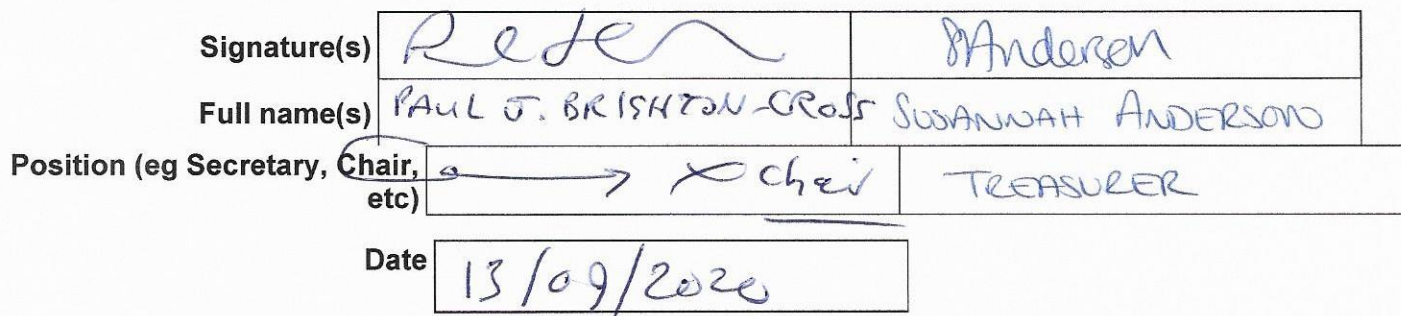 Signature(s) SAnderson
Full name(s) PAUL J. BRIGHTON-CROSS SUSANNAH ANDERSON
Position (eg Secretary, Chair, Chair TREASURER
etc)
Date 13/09/2020